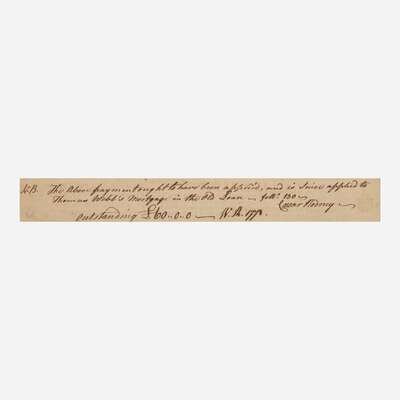 N.B. The Above payment ought to have been applied, and is since applied to
Thomas Webb's Mortgage in the Old Loan — foll. 130 —
Caesar Rodney
outstanding £60..0..0 — 1778.